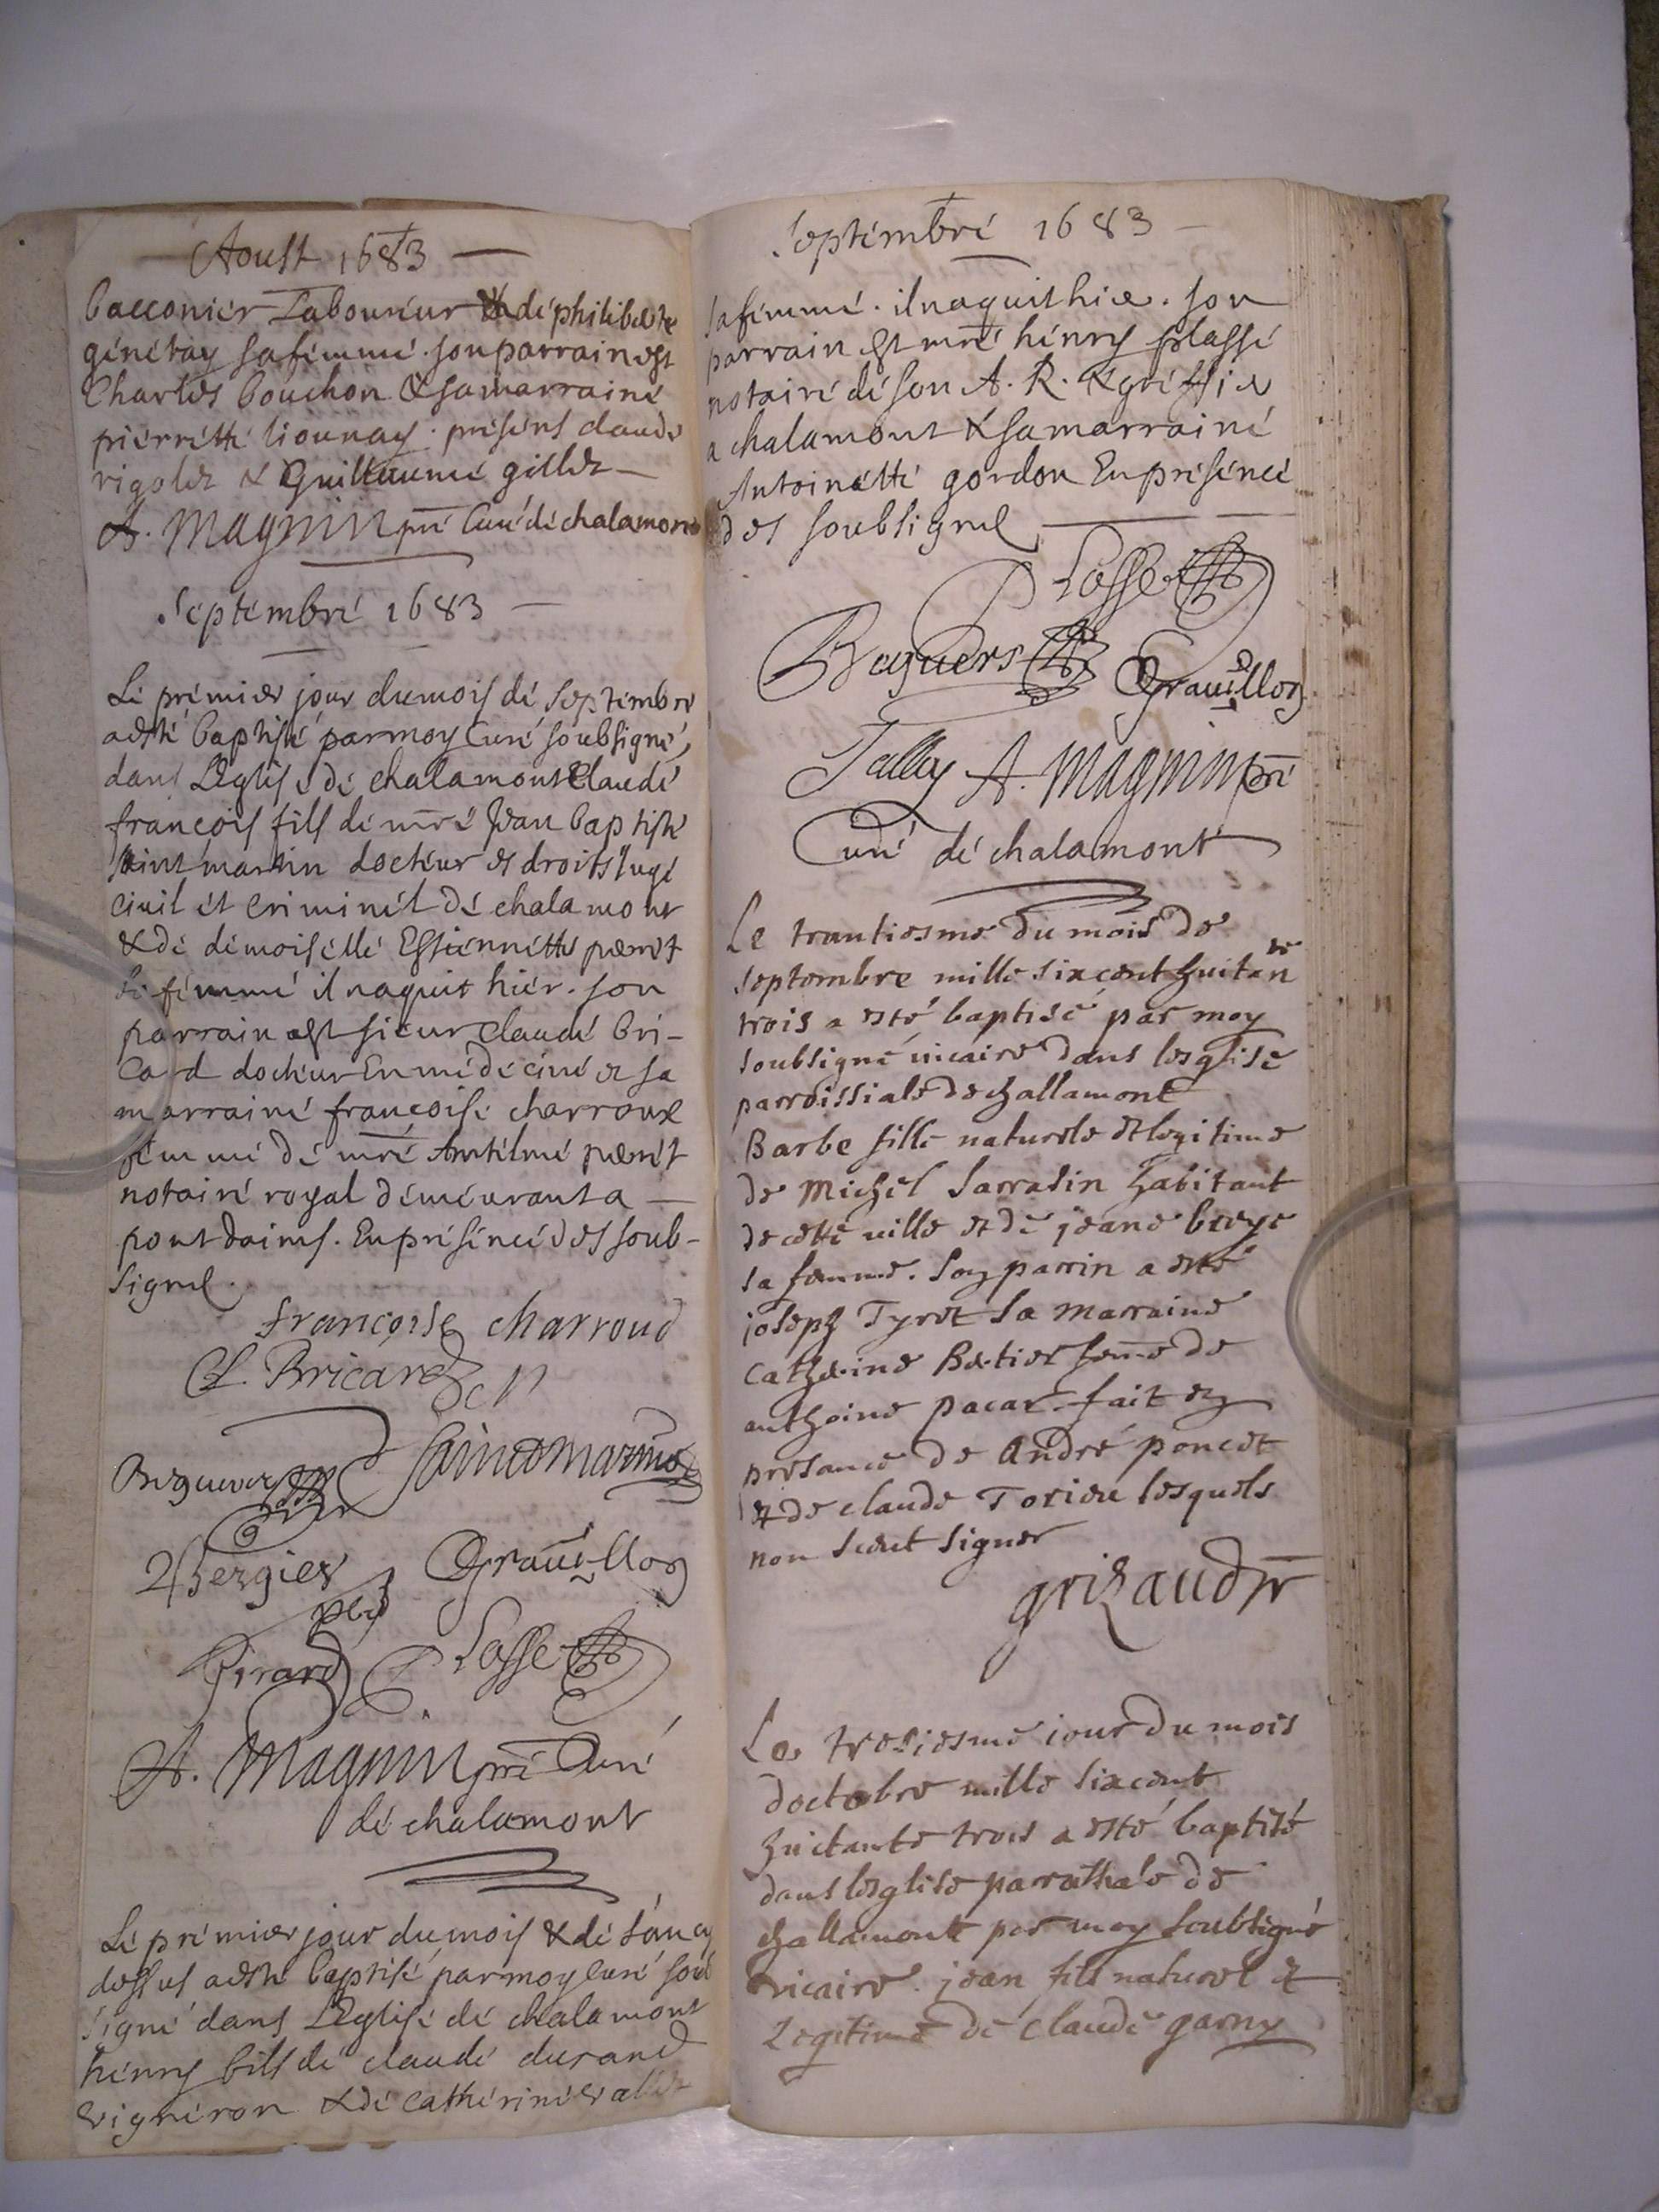 Aoust 1683
bacconier Laboureur & de philiberte
genetay sa femme. son parrain est
Charles bouchon & sa marraine
pierrette liounay. presens claude
rigolet & Guillaume gillet
A. Magnin pre Curé de chalamont
Septembre 1683
Le premier jour du mois de septembre
a esté baptisé par moy Curé soubsigné,
dans L'Eglise de chalamont Claude
francois fils de mre Jean baptiste
saint martin docteur es droits Juge
civil et criminel de chalamont
& de demoiselle Estiennette peret
sa femme il naquit hier. son
parrain est sieur claude bri-
card docteur En medecine et sa
marraine francoise charroux
femme de mre Antelme peret
notaire royal demeurant a
pont dains. En presence des soub-
signés.
francoise charroud
Cl. Bricard
Beguerer Sainctmartin
Bergier Gravillon
Girard Losse
A. Magnin pre Curé
de chalamont
Le premier jour du mois & de l'an cy
dessus a esté baptisé par moy curé soub
signé dans L'Eglise de chalamont
henry fils de claude durand
vigneron & de catherine valet
Septembre 1683
sa femme. il naquit hier. son
parrain est mre henry plasse
notaire de son A. R. & greffier
a chalamont & sa marraine
Antoinette gordon En presence
des soubsignés
Losse
Beguers Gravillon
Tallay A. Magnin pre
Curé de chalamont
Le trantiesme du mois de
septembre mille six cent huitante
trois a esté baptisé par moy
soubsigné vicaire dans lesglise
parroissiale de challamont
Barbe fille naturele et legitime
de Michel Sarrasin habitant
de cette ville et de jeane broye
sa femme. Son parrin a esté
joseph Tyret sa marraine
catherine Bertier feme de
anthoine pacar fait en
presance de André poncet
et de claude Torieu lesquels
non sceut signer
grizaud vr
Le tresiesme iour du mois
doctobre mille six cent
huictante trois a esté baptisé
dans lesglise parrochiale de
challamont par moy soubsigné
vicaire jean fils naturel et
Legitime de claude garny